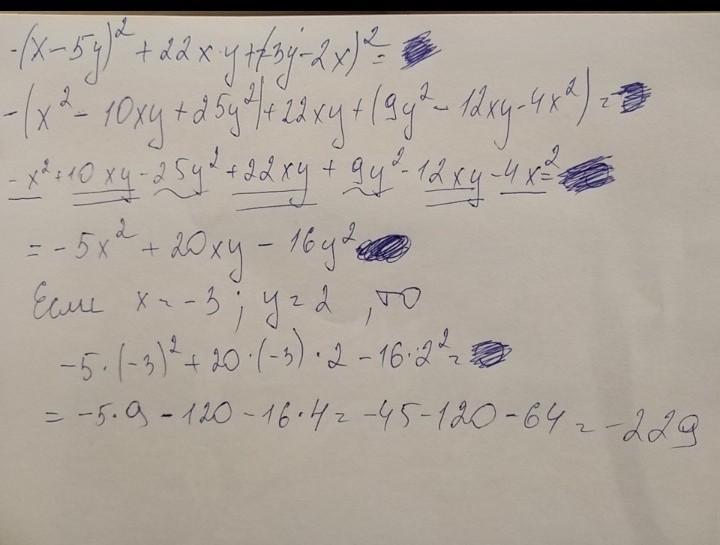 -(x-5y)² + 22x·y+(-3y-2x)² =
-(x² - 10xy + 25y²)+22xy+(9y² - 12xy-4x²) =
-x²+10xy-25y²+22xy + 9y²-12xy-4x²=
= -5x² + 20xy - 16y²
Если x = -3 ; y = 2 , то
-5·(-3)² + 20·(-3)·2 - 16·2² =
= -5·9 - 120 - 16·4 = -45-120-64 = -229